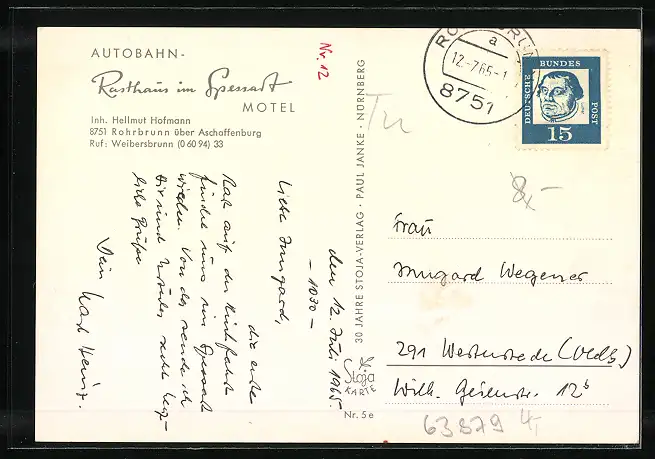 AUTOBAHN-
Rasthaus im Spessart
MOTEL
Inh. Hellmut Hofmann
8751 Rohrbrunn über Aschaffenburg
Ruf: Weibersbrunn (0 60 94) 33
Nr. 12
den 12. Juli 1965.
- 1030 -
Liebe Irmgard,
die erste
Rast auf der Rückfahrt
findet uns im Spessart
wieder. Von da sende ich
Dir und Ursula recht herz-
liche Grüße
Dein Karl Heinz.
30 JAHRE STOJA-VERLAG · PAUL JANKE · NÜRNBERG
Stoja
KARTE
Nr. 5e
a
12.-7.65-1
8751
DEUTSCHE BUNDES POST
15
8,-
Frau
Irmgard Wegener
291 Westerstede (Oldb)
Wilh. Geilerstr. 12b
63879 4,-